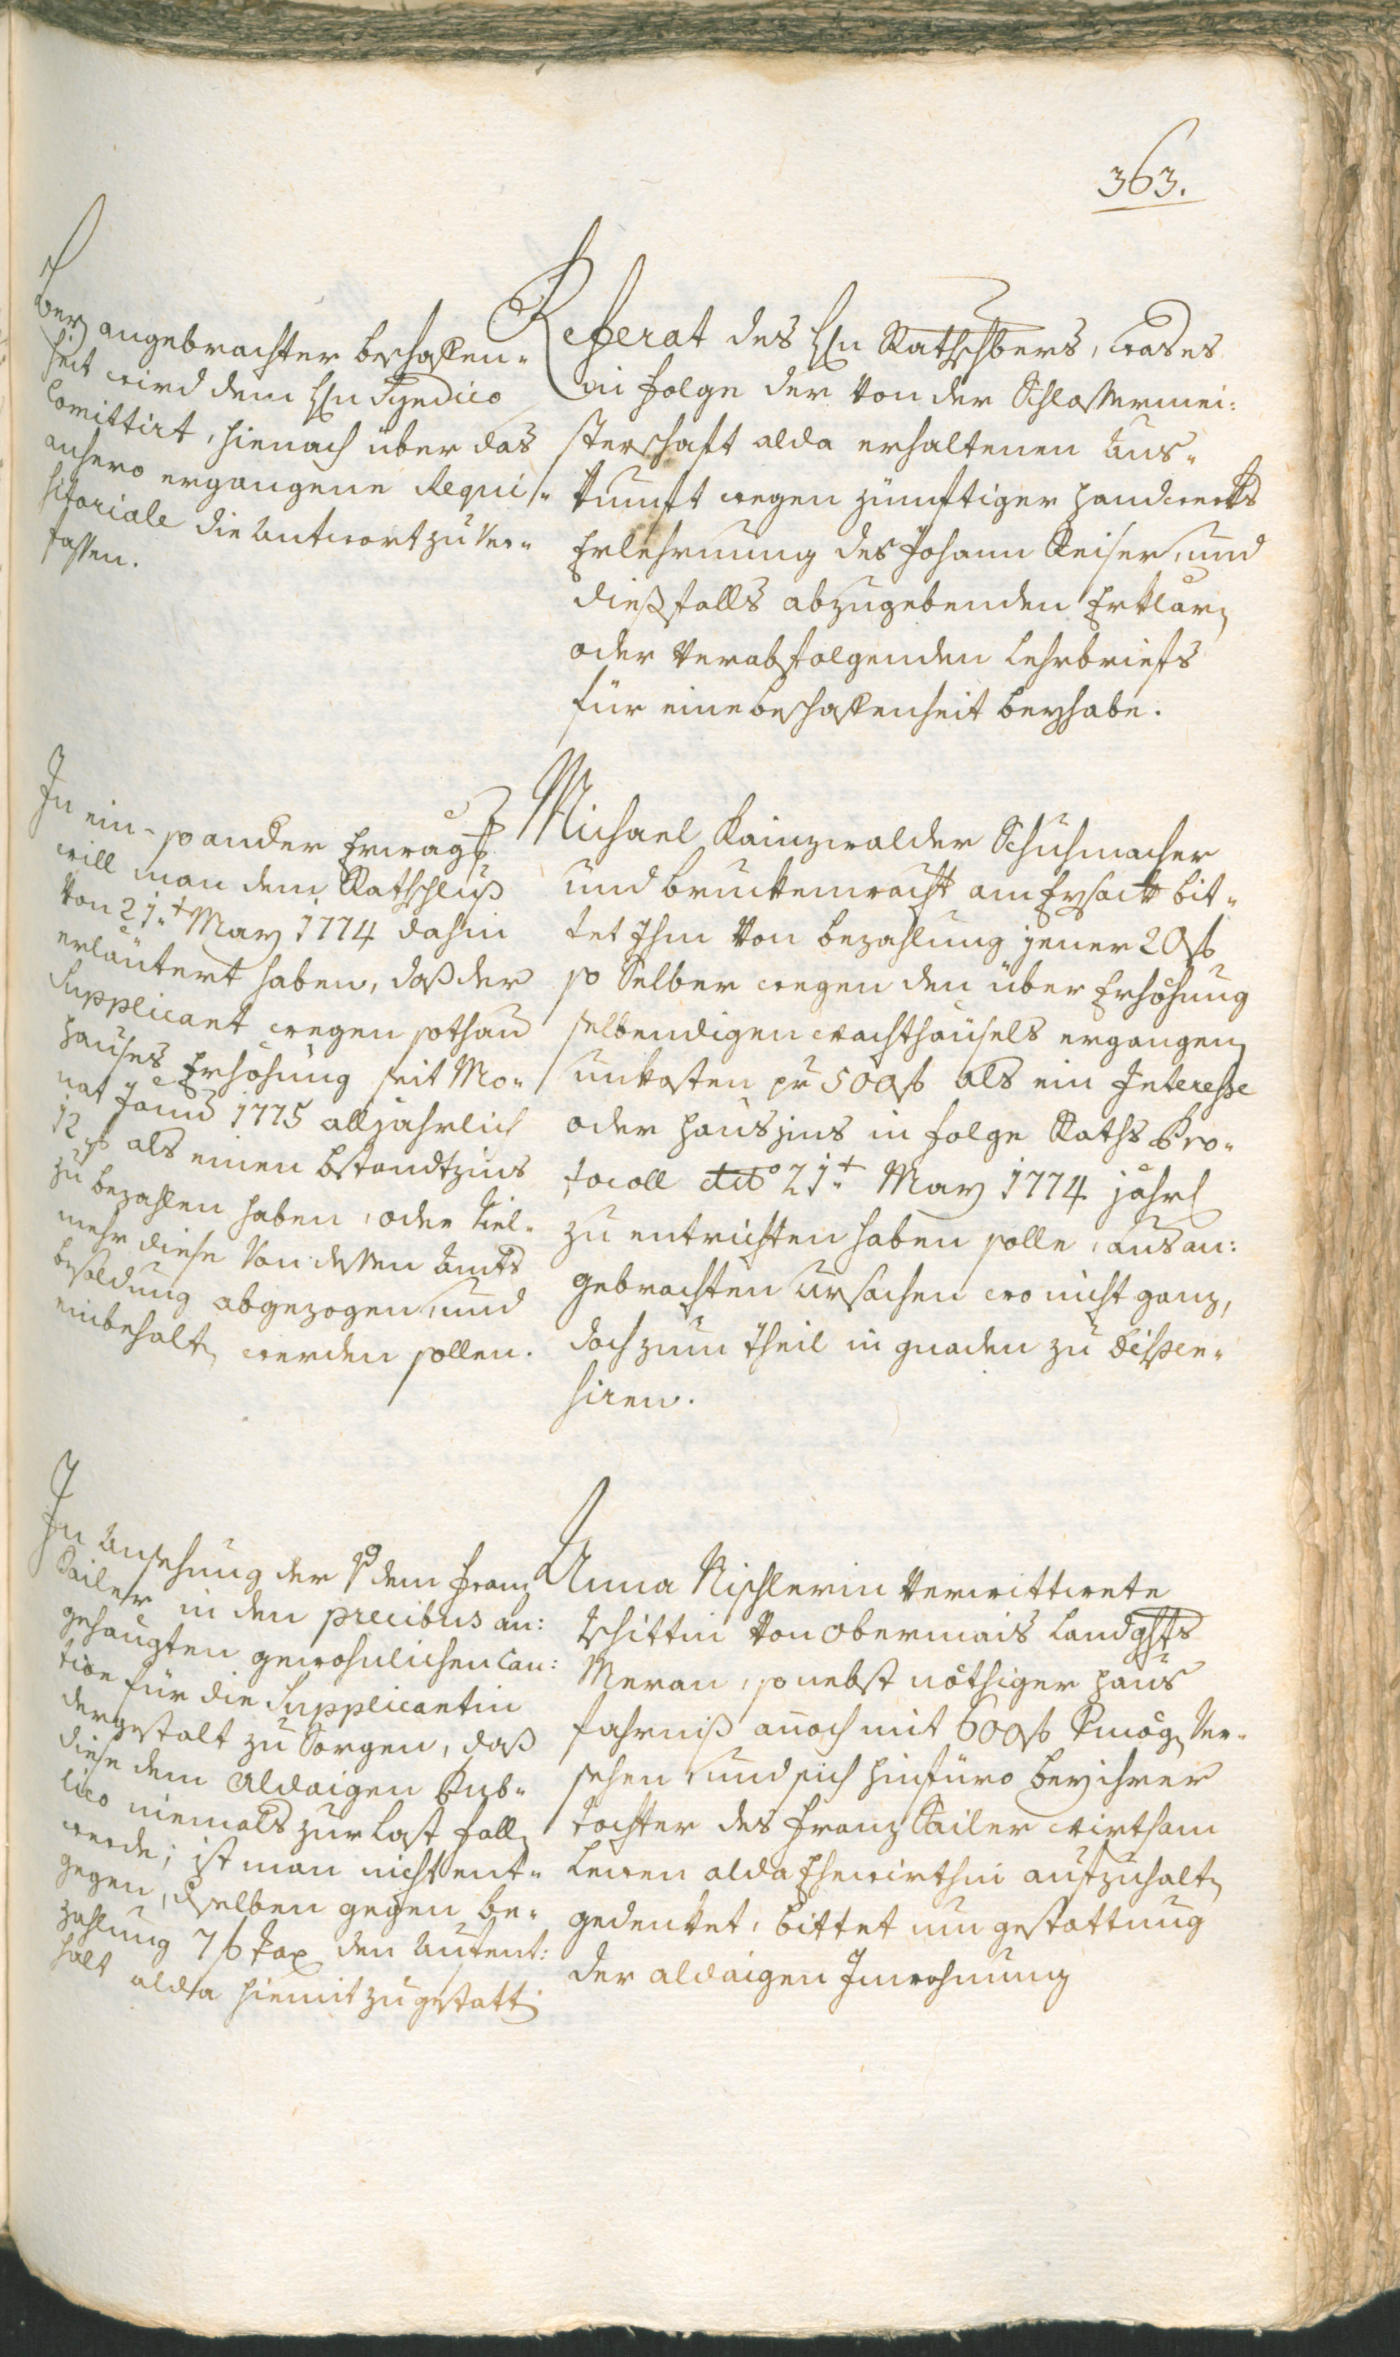 363.
Bey angebrachter beschaffen=
heit wird dem Hln Syndico
Comittirt, hienach über das
anhero ergangene Requi=
sitoriale die Antwort zu Ver=
fassen.
Referat des Hln Rathschbers, was es
in folge der Von der Schlossermei:
sterschaft alda erhaltenen Aus=
kunft wegen zünftiger handwerks
Erlehrnung des Johann Keiser, und
dießfalls abzugebenden Erklär
oder Verabfolgenden Lehrbriefs
für eine beschaffenheit beyhabe.
In ein- so ander Erwag
will man dem Rathschluß
Von 21.t May 1774 dahin
erläutert haben, daß der
Supplicant wegen sothan
hauses Erhöhung seit Mo=
nat 1775 alljährlich
12 f als einen bstandtzins
zu bezahlen haben, oder Viel=
mehr diese Von dessen Amts
besoldung abgezogen, und
einbehalt werden sollen.
Michael Kainzwalder Schuhmacher
und bruckenwacht am Eysack bit=
tet Ihm Von bezahlung jener 20 f
so Selber wegen den über Erhöhung
selbendigen wachthäusels ergangen
unkosten pr 500 f als ein Interesse
oder hauszins in folge Raths Pro=
tocoll dto 21.t May 1774 jährl
zu entrichten haben solle, aus an:
gebrachten Ursachen wo nicht ganz,
doch zum Theil in gnaden zu dispen=
siren.
In Ansehung der dem Franz
Sailer in den precibus an:
gehängten gewohnlichen Cau:
tion für die Supplicantin
dergestalt zu Sorgen, daß
diese dem Aldaigen Pub=
lico niemals zur Last fall
werde; ist man nicht ent=
gegen, dselben gegen be=
zahlung 7 f tax den Aufent:
halt alda hiemit zu gestatt
Anna Nischlerin Verwittwete
Tschittin Von Obermais Landghts
Meran, so nebst nöthiger haus
fahrniß annoch mit 600 f Vmög Ver=
sehen, und sich hinfüro bey ihrer
tochter des Franz Sailer wirths am
Lewen alda Ehewirthin aufzuhalt
gedenket, bittet um gestattung
der aldaigen Inwohnung